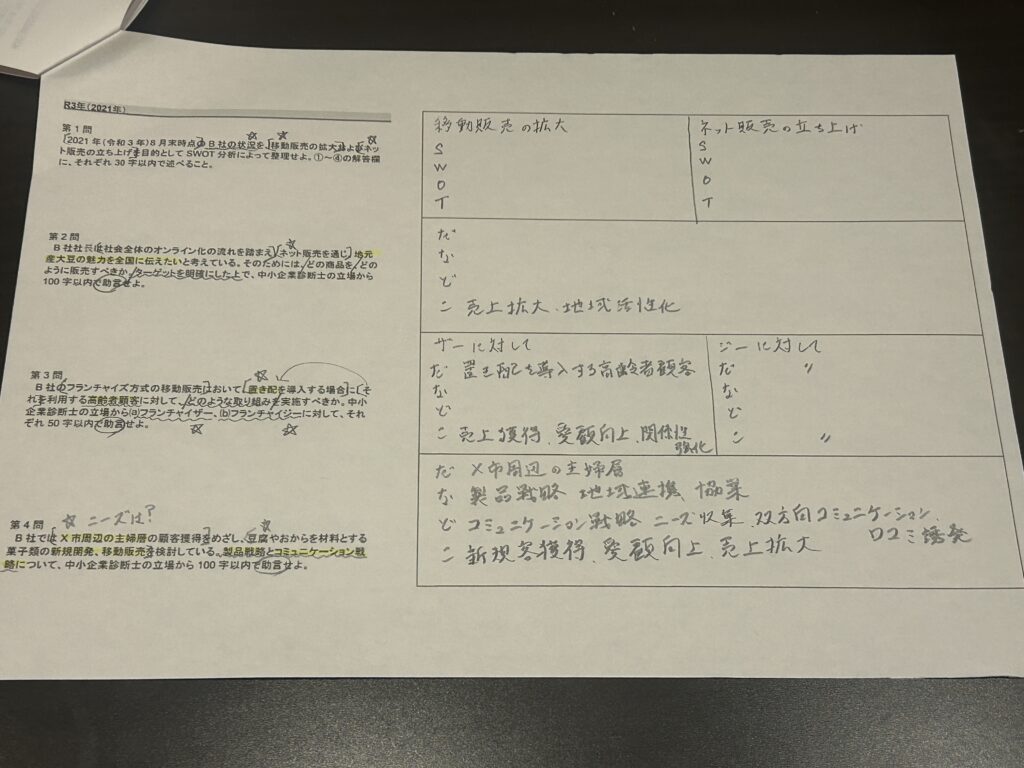 R3年(2021年)
第1問
2021年(令和3年)8月末時点のB社の状況を、移動販売の拡大およびネッ
ト販売の立ち上げを目的としてSWOT分析によって整理せよ。①~④の解答欄
に、それぞれ30字以内で述べること。
第2問
B社社長は社会全体のオンライン化の流れを踏まえ、ネット販売を通じ、地元
産大豆の魅力を全国に伝えたいと考えている。そのためには、どの商品を、どの
ように販売すべきか。ターゲットを明確にした上で、中小企業診断士の立場から
100字以内で助言せよ。
第3問
B社のフランチャイズ方式の移動販売において、置き配を導入する場合に、そ
れを利用する高齢者顧客に対して、どのような取り組みを実施すべきか。中小
企業診断士の立場から(a)フランチャイザー、(b)フランチャイジーに対して、それ
ぞれ50字以内で助言せよ。
☆ ニーズは?
第4問
B社ではX市周辺の主婦層の顧客獲得をめざし、豆腐やおからを材料とする
菓子類の新規開発、移動販売を検討している。製品戦略とコミュニケーション戦
略について、中小企業診断士の立場から100字以内で助言せよ。
移動販売の拡大
S
W
O
T
ネット販売の立ち上げ
S
W
O
T
だ
な
ど
こ 売上拡大、地域活性化
ザーに対して
だ 置き配を導入する高齢者顧客
な
ど
こ 売上獲得、愛顧向上、関係性
強化
ジーに対して
だ 〃
な
ど
こ 〃
だ X市周辺の主婦層
な 製品戦略 地域連携、協業
ど コミュニケーション戦略 ニーズ収集、双方向コミュニケーション、
口コミ誘発
こ 新規客獲得、愛顧向上、売上拡大